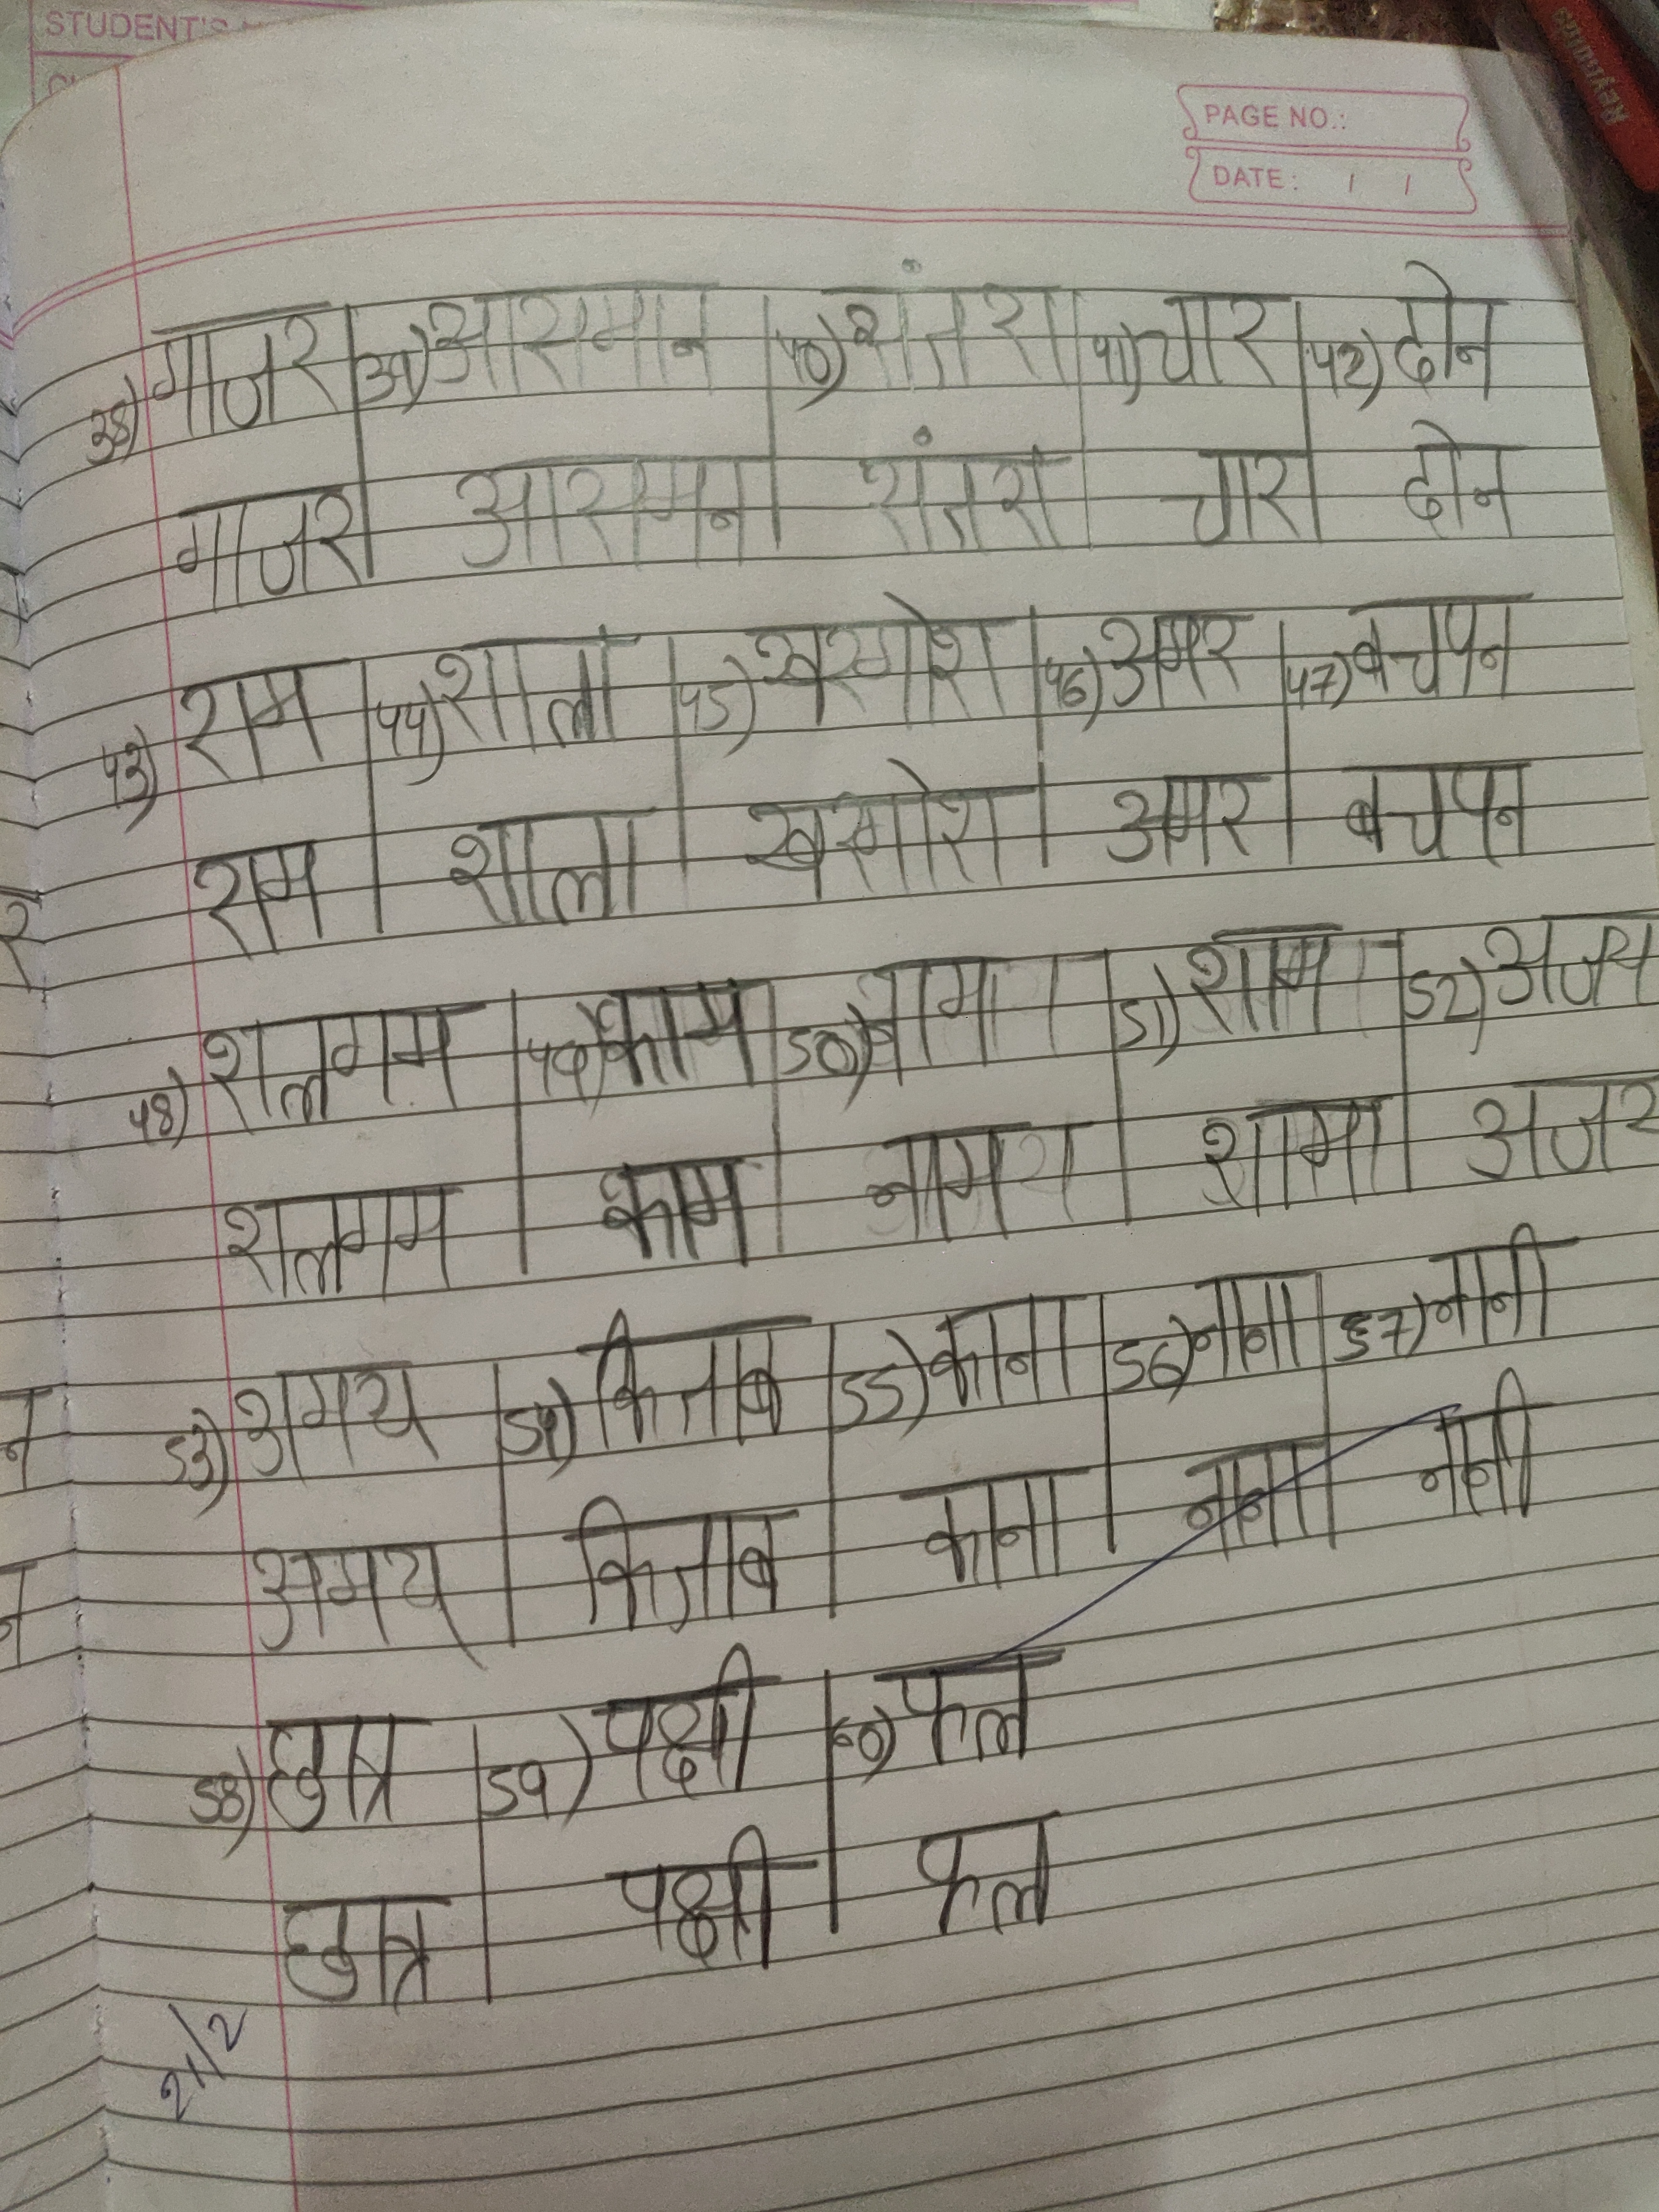 STUDENT'S
PAGE NO.:
DATE: / /
38) गाजर 39) आसमान 40) संतरा 41) चार 42) दोन
गाजर आसमन संतरा चार दोन
43) राम 44) शाला 45) खरगोश 46) अमर 47) बचपन
राम शाला खरगोश अमर बचपन
48) शलगम 49) काम 50) नाम 51) शाम 52) अजय
शलगम काम नाम शामा अजर
53) अमय 54) किताब 55) काना 56) नाना 57) नानी
अमय किताब काना नाना नानी
58) छात्र 59) पक्षी 60) फल
छात्र पक्षी फल
21/2